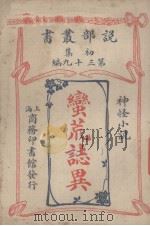 説部叢書
初集
第三十九編
神怪小說
蠻荒誌異
上海商務印書館發行